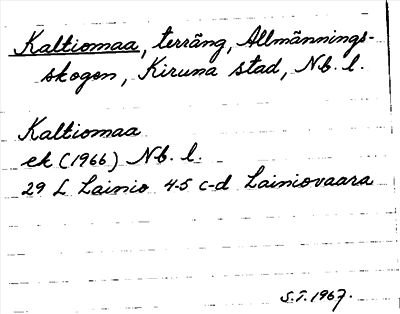 Kaltiomaa, terräng, Allmännings-
skogen, Kiruna stad, Nb. l.
Kaltiomaa
ek (1966) Nb. l.
29 L Lainio 4-5 c-d Lainiovaara
S.T. 1967.